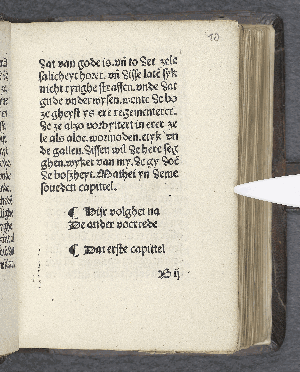 10
dat van gode is. vñ to der zele
salicheyt horet. vñ disse late sijk
nicht tzyghe straffen. vnde dat
gude vnderwysen. wente de bo
ze gheyst ys ere regementerer.
de ze alzo vorbyttert in erer ze
le als aloe. wormoden. etyk vn
de gallen. dissen wil de here seg
ghen. wyket van my. de gy doet
de boszheyt. Mathei yn deme
soueden capittel.
¶ Hijr volghet na
De ander vorrede
¶ Dat erste capittel
B ij